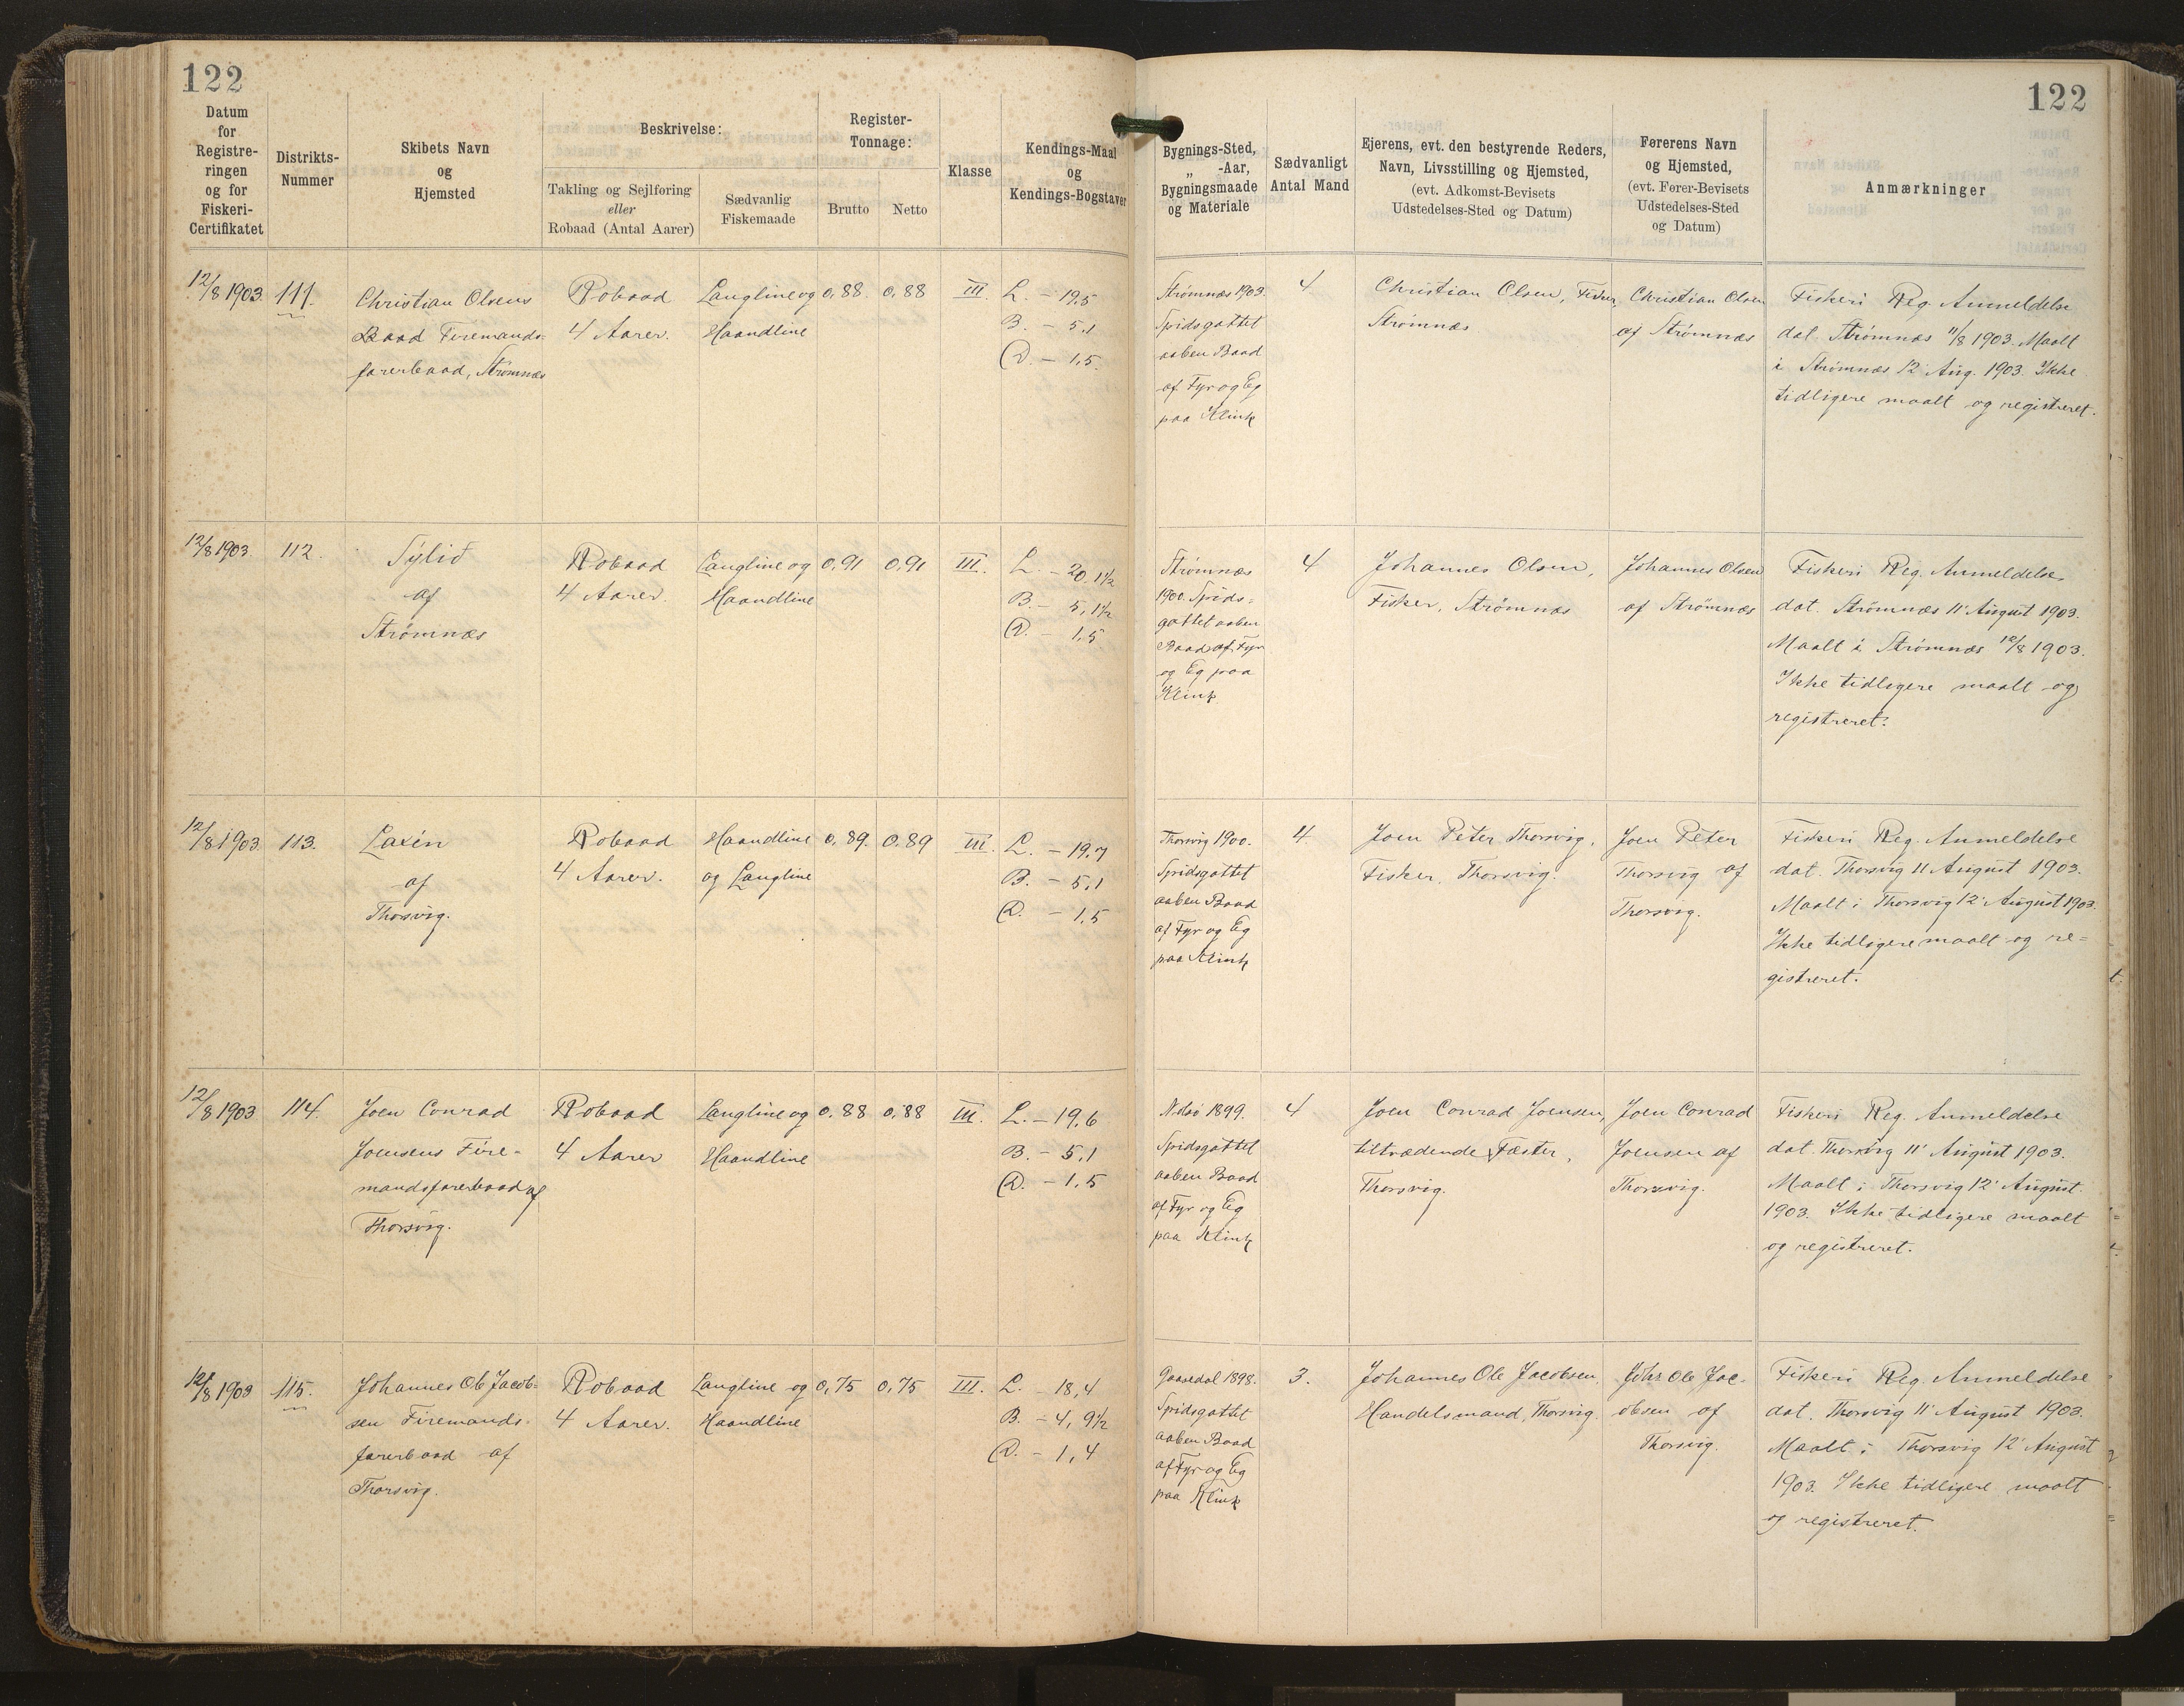 122
Datum
for
Registre-
ringen
og for
Fiskeri-
Certifikatet
Distrikts-
Nummer
Skibets Navn
og
Hjemsted
Beskrivelse:
Takling og Sejlføring
eller
Robaad (Antal Aarer)
Sædvanlig
Fiskemaade
Register-
Tonnage:
Brutto
Netto
Klasse
Kendings-Maal
og
Kendings-Bogstaver
122
Bygnings-Sted,
„ -Aar,
Bygningsmaade
og Materiale
Sædvanligt
Antal Mand
Ejerens, evt. den bestyrende Reders,
Navn, Livsstilling og Hjemsted,
(evt. Adkomst-Bevisets
Udstedelses-Sted og Datum)
Førerens Navn
og Hjemsted,
(evt. Fører-Bevisets
Udstedelses-Sted
og Datum)
Anmærkninger
12/8 1903.
111.
Christian Olsens
Baad Firemands-
farerbaad, Strømnæs
Robaad
4 Aarer.
Langline og
Haandline
0,88.
0,88
III.
L. - 19,5
B. - 5,1
D. - 1,5.
Strømnæs 1903.
Spidsgattet
aaben Baad
af Fyr og Eg
paa Klink
4
Christian Olsen, Fisker,
Strømnæs
Christian Olsen
af Strømnæs
Fiskeri Reg. Anmeldelse
dat. Strømnæs 11/8 1903. Maalt
i Strømnæs 12' Aug. 1903. Ikke
tidligere maalt og registreret.
12/8 1903.
112.
Sýlið
af
Strømnæs
Robaad
4 Aarer.
Langline og
Haandline
0,91
0,91
III.
L. - 20,1½
B. - 5,1½
D. - 1,5
Strømnæs
1900. Spids-
gattet aaben
Baad af Fyr
og Eg paa
Klink
4
Johannes Olsen,
Fisker, Strømnæs
Johannes Olsen
af Strømnæs
Fiskeri Reg. Anmeldelse
dat. Strømnæs 11' August 1903.
Maalt i Strømnæs 12/8 1903.
Ikke tidligere maalt og
registreret.
12/8 1903.
113.
Laxin
af
Thorsvig.
Robaad
4 Aarer.
Haandline
og Langline
0,89.
0,89
III.
L. - 19,7
B. - 5,1
D. - 1,5
Thorsvig 1900.
Spidsgattet
aaben Baad
af Fyr og Eg
paa Klink
4.
Joen Peter Thorsvig,
Fisker, Thorsvig.
Joen Peter
Thorsvig af
Thorsvig.
Fiskeri Reg. Anmeldelse
dat. Thorsvig 11 August 1903.
Maalt i Thorsvig 12' August 1903.
Ikke tidligere maalt og re=
gistreret.
12/8 1903
114.
Joen Conrad
Joensens Fire-
mandsfarerbaad af
Thorsvig.
Robaad
4 Aarer
Langline og
Haandline
0,88
0,88
III.
L. - 19,6
B. - 5,1
D. - 1,5
Nolsø 1899.
Spidsgattet
aaben Baad
af Fyr og Eg
paa Klink
4
Joen Conrad Joensen,
tiltrædende Fæster,
Thorsvig.
Joen Conrad
Joensen af
Thorsvig.
Fiskeri Reg. Anmeldelse
dat. Thorsvig 11' August 1903.
Maalt i Thorsvig 12' August
1903. Ikke tidligere maalt
og registreret.
12/8 1903
115.
Johannes Ole Jacob-
sen Firemands-
farerbaad af
Thorsvig.
Robaad
4 Aarer.
Langline og
Haandline
0,75
0,75
III.
L. - 18,4
B. - 4, 9½
D. - 1,4
Gaasedal 1898.
Spidsgattet
aaben Baad
af Fyr og Eg
paa Klink
3.
Johannes Ole Jacobsen,
Handelsmand, Thorsvig.
Johs Ole Jac-
obsen af
Thorsvig.
Fiskeri Reg. Anmeldelse
dat. Thorsvig 11' August 1903.
Maalt i Thorsvig 12' August
1903. Ikke tidligere maalt
og registreret.